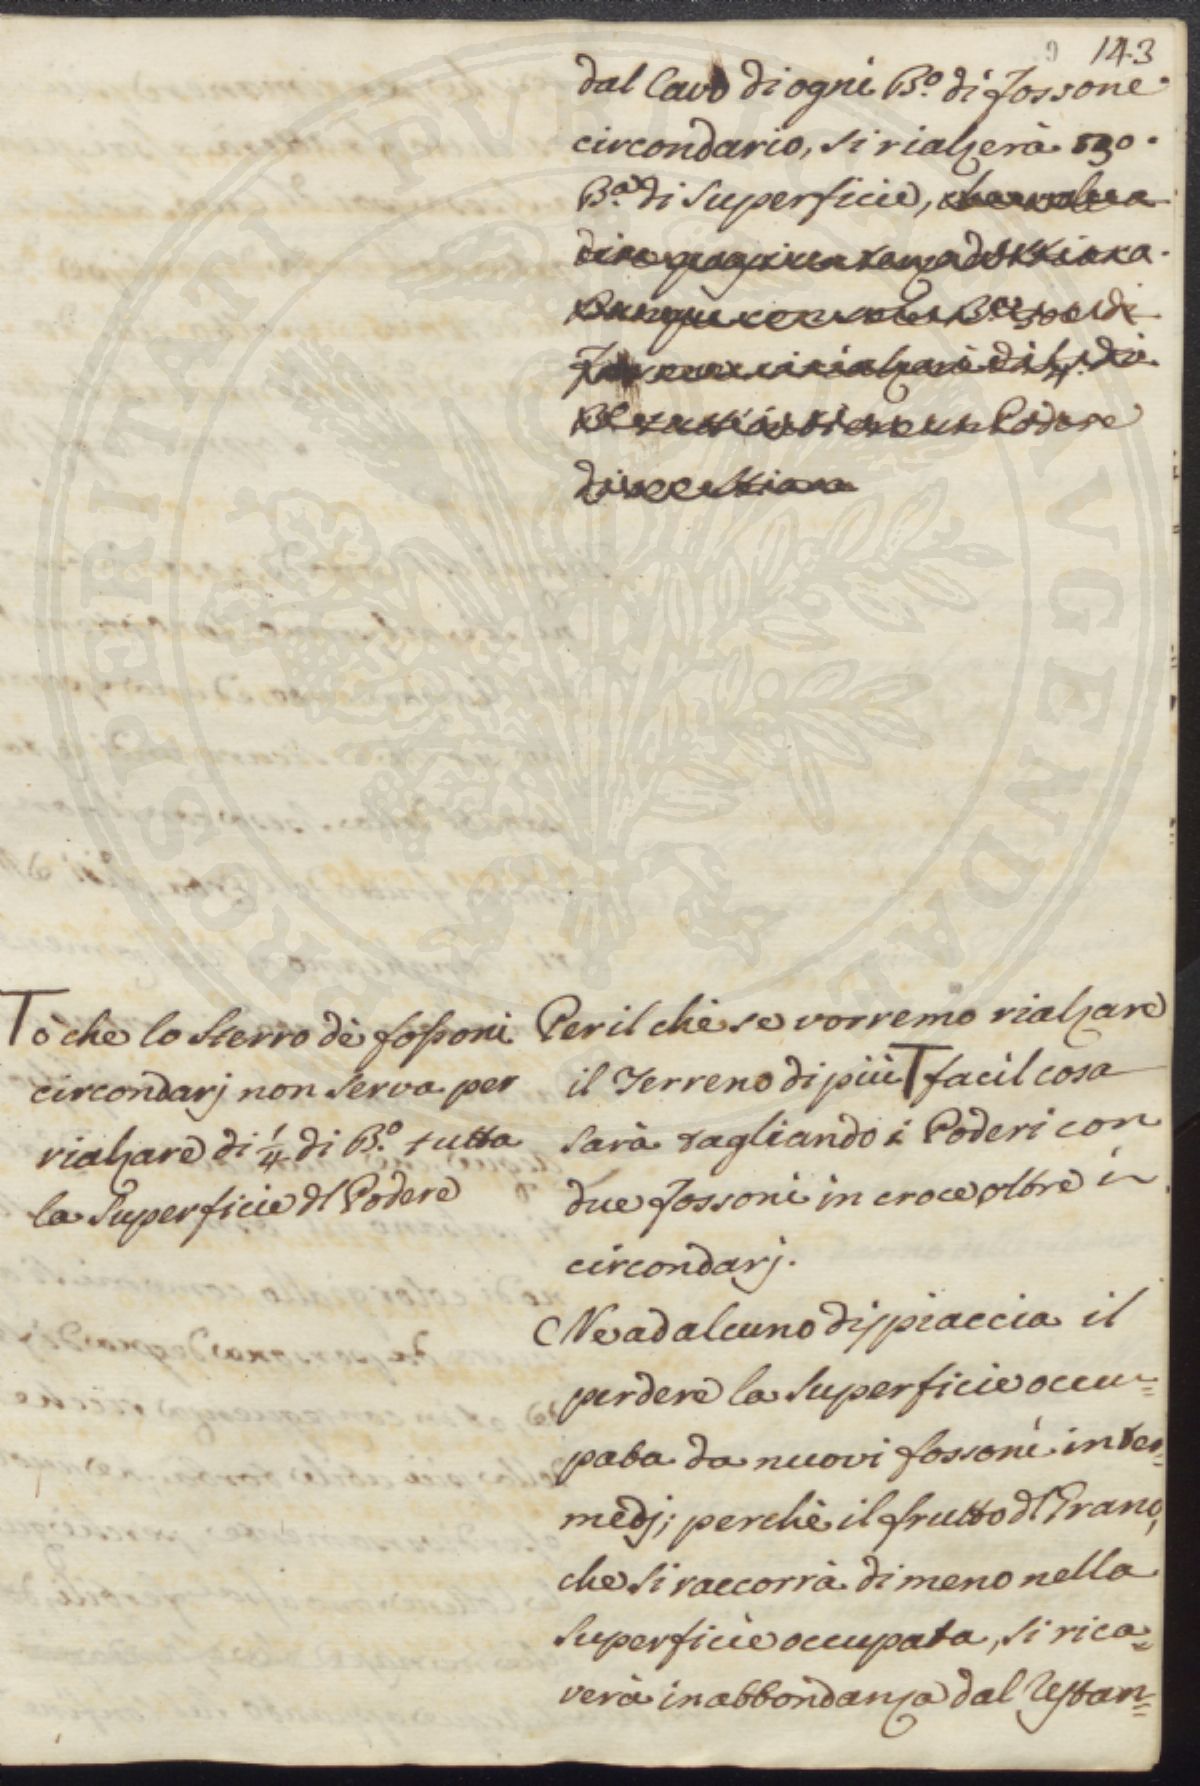 143
dal Cavo di ogni B.º di Fossone
circondario, si rialzerà
B.ª di Superficie,
Per il chè se vorremo rialzare
il Terreno di più T facil cosa
sarà tagliando i Poderi con
due Fossoni in croce oltre i
circondarj.
Ne ad alcuno dispiaccia il
perdere la Superficie occu=
pata da nuovi fossoni inter=
medj; perchè il frutto dl Grano,
che si raccorrà di meno nella
Superficie occupata, si rica=
verà in abbondanza dal restan=
T ò che lo sterro dè fossoni
circondarj non serva per
rialzare di 1/4 di B.º tutta
la Superficie dl Podere
PROSPERITATI PVBLICAE AVGENDAE